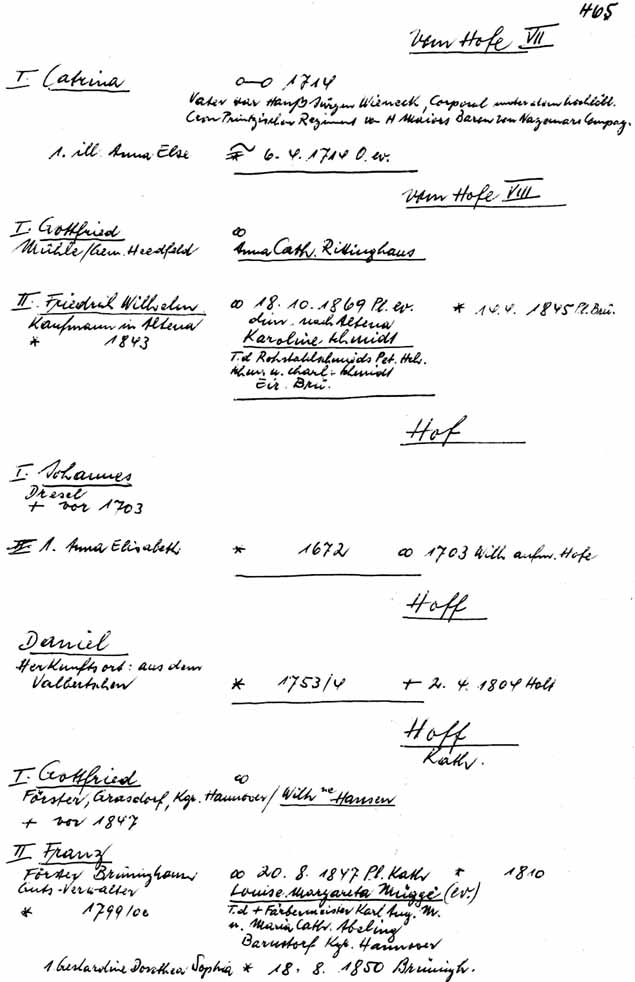 465
Vom Hofe VII
I. Catrina o—o 1714
Vater war Hanß Jürgen Wieneck, Corporal unter dem hochlöbl.
Cron Printzischen Regiment von H Maiors Baron von Nazomars Compag.
1. ill. Anna Else 6. 4. 1714 O. ev.
Vom Hofe VIII
I. Gottfried ∞
Mühle/Gem. Heedfeld Anna Cath. Rittinghaus
II. Friedrich Wilhelm ∞ 18. 10. 1869 Pl. ev. * 14.4. 1845 Pl. Brü.
Kaufmann in Altena dim. nach Altena
* 1843 Karoline Schmidt
T.d Rohstahlschmieds Pet. Hch.
Schm. u. Charl. Schmidt
Eir. Brü.
Hof
I. Johannes
Dresel
+ vor 1703
II 1. Anna Elisabeth * 1672 ∞ 1703 Wilh. aufm. Hofe
Hoff
Daniel
Herkunftsort: aus dem
Valbertschen * 1753/4 + 2. 4. 1804 Holt
Hoff
Kath.
I. Gottfried ∞
Förster, Grasdorf, Kgr. Hannover/ Wilh ne Hansen
+ vor 1847
II Franz
Förster Brüninghaus ∞ 20. 8. 1847 Pl. Kath * 1810
Guts-Verwalter Louise Margareta Müggé (ev.)
* 1799/00 T.d + Färbermeister Karl Aug. M.
u. Maria Cath. Abeling
Barnstorf Kgr. Hannover
1. Gerhardine Dorothea Sophia * 18. 8. 1850 Brüningh.